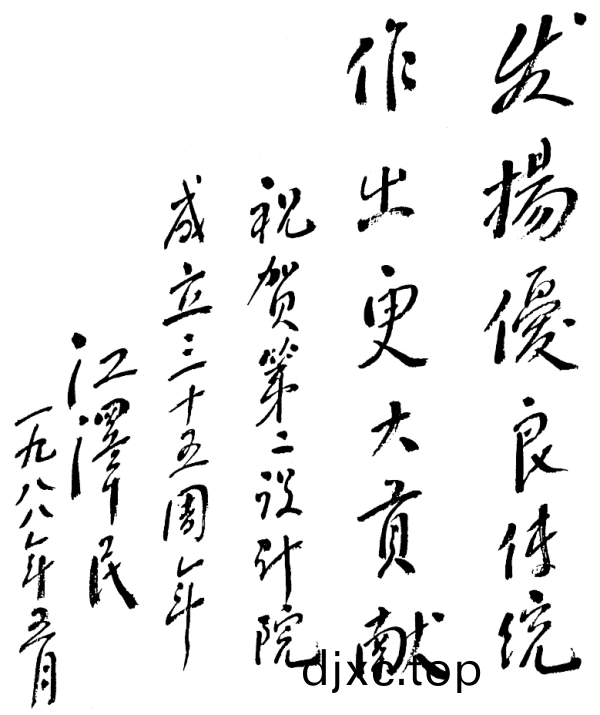 发揚優良传统
作出更大贡献
祝贺第二设计院
成立三十五周年
江澤民
一九八八年五月
djxc.top